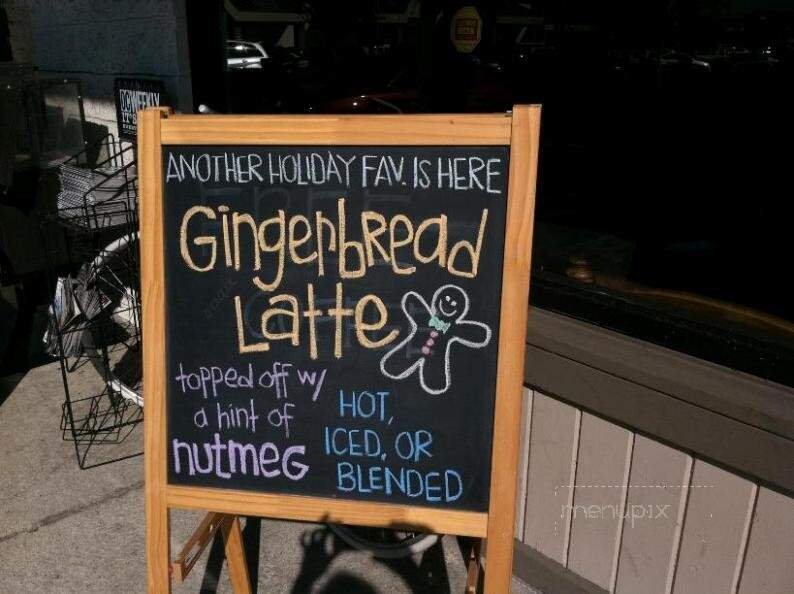 ANOTHER HOLIDAY FAV. IS HERE
GingerbRead
Latte
topped off w/
a hint of
nutmeG
HOT,
ICED, OR
BLENDED
OCWEEKLY
menupix